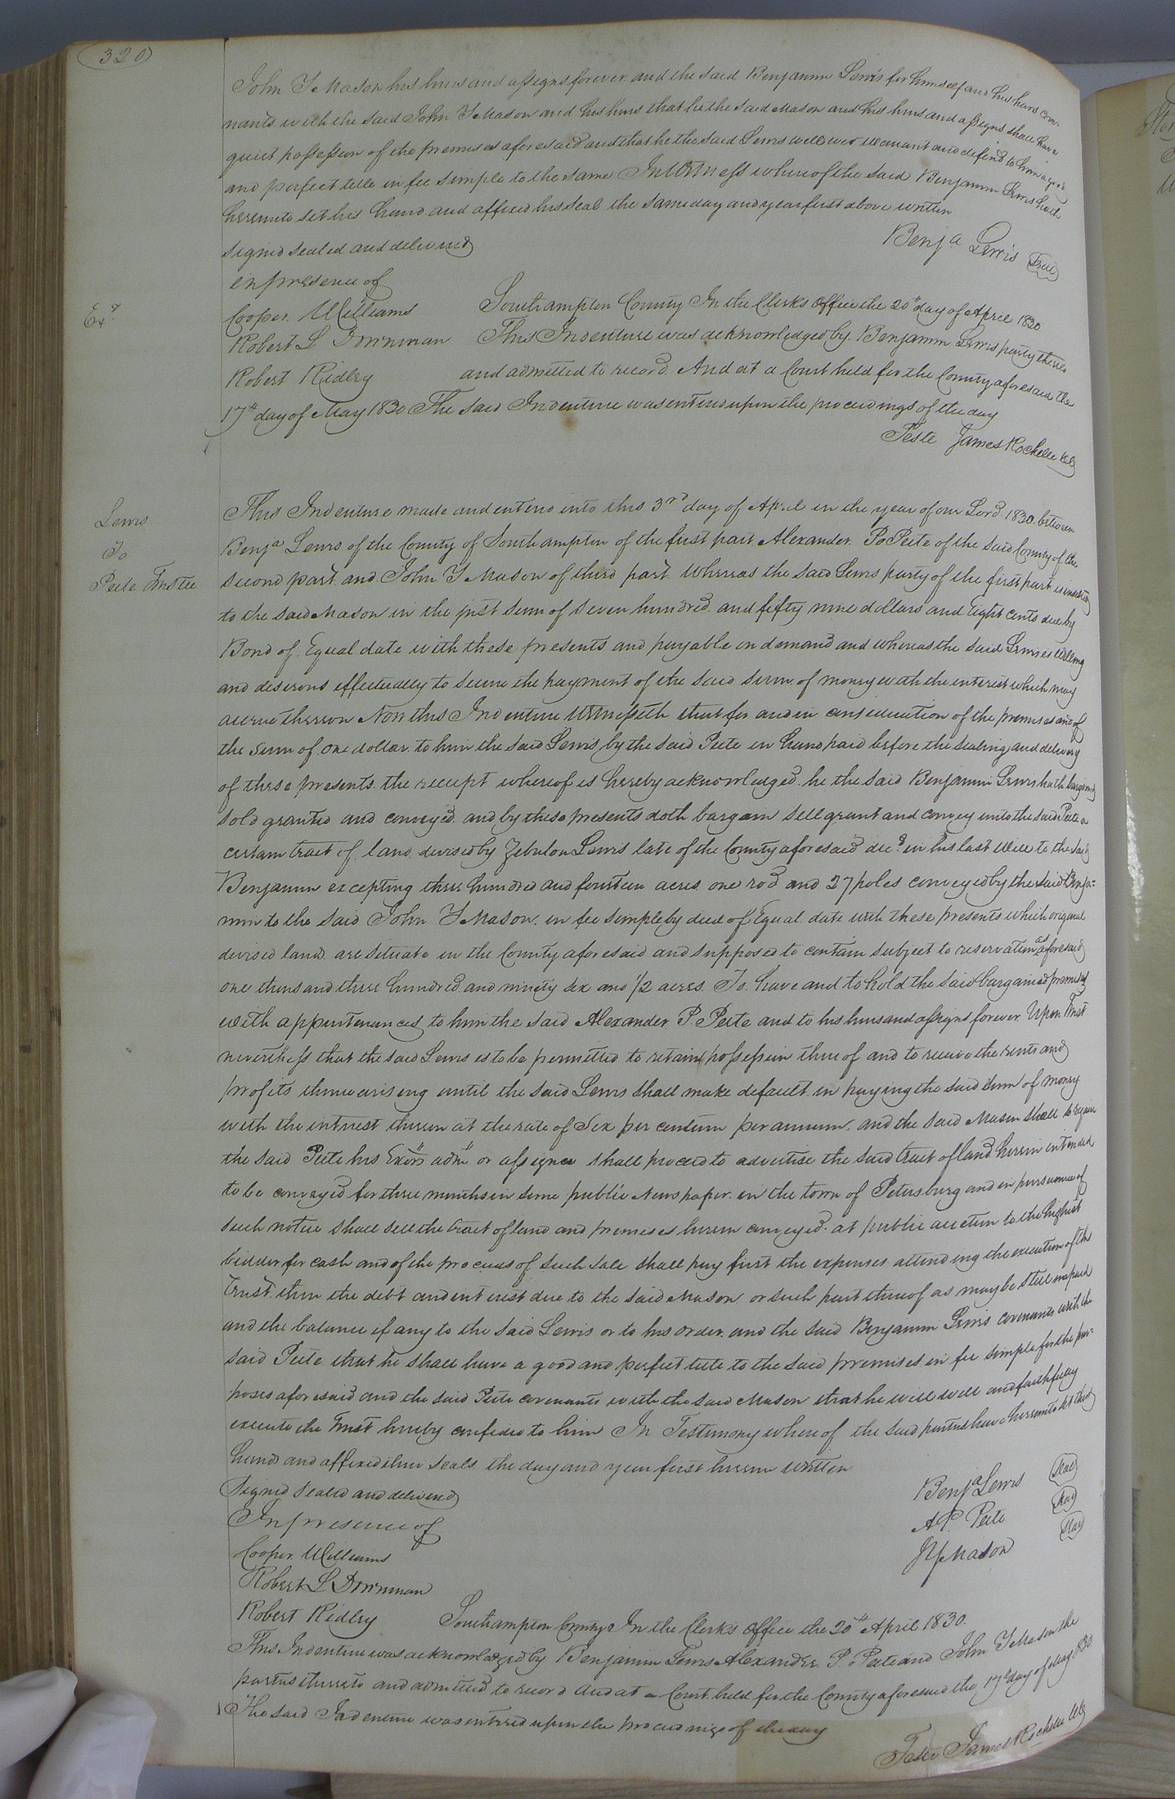 320
John Y Mason his heirs and assigns forever. and the said Benjamin Lewis for himself and his heirs cove-
nants with the said John Y Mason and his heirs that he the said Mason and his heirs and assigns shall have
quiet possession of the premises aforesaid and that he the said Lewis will warrant and defend to him a good
and perfect title in fee simple to the same In Witness whereof the said Benjamin Lewis hath
hereunto set his hand and affixed his seal the same day and year first above written
Signed sealed and delivered
Benja Lewis Seal
in presence of
Cooper Williams
Robert S Downman
Robert Ridley
Exd
Southampton County In the Clerks office the 20th day of April 1830
This Indenture was acknowledged by Benjamin Lewis party thereto
and admitted to record And at a Court held for the County aforesaid the
17th day of May 1830 The said Indenture was entered upon the proceedings of the day
Teste James Rochelle Clk
Lewis
To
Peete Trustee
This Indenture made and entered into this 3rd day of April in the year of our Lord 1830 between
Benja Lewis of the County of Southampton of the first part Alexander P Peete of the said County of the
second part and John Y Mason of third part Whereas the said Lewis party of the first part is indebted
to the said Mason in the just sum of seven hundred and fifty nine dollars and Eight cents due by
Bond of Equal date with these presents and payable on demand and whereas the said Lewis is willing
and desirous effectually to secure the payment of the said sum of money with the interest which may
accrue thereon Now this Indenture Witnesseth that for and in consideration of the premises and of
the sum of one dollar to him the said Lewis by the said Peete in hand paid before the sealing and delivery
of these presents the receipt whereof is hereby acknowledged he the said Benjamin Lewis hath bargained
sold granted and conveyed and by these presents doth bargain sell grant and convey unto the said Peete a
certain tract of land devised by Zebulon Lewis late of the County aforesaid decd in his last Will to the said
Benjamin excepting three hundred and fourteen acres one rod and 27 poles conveyed by the said Benja-
min to the said John Y Mason in fee simple by deed of Equal date with these presents which original
devised land are situate in the County aforesaid and supposed to contain subject to reservation as aforesaid
one thousand three hundred and ninety six and 1/2 acres To have and to hold the said bargained premises
with appurtenances to him the said Alexander P Peete and to his heirs and assigns forever Upon Trust
nevertheless that the said Lewis is to be permitted to retain possession thereof and to receive the rents and
profits thence arising until the said Lewis shall make default in paying the said sum of money
with the interest therein at the rate of Six per centum per annum. and the said Mason shall require
the said Peete his Exors admrs or assigns shall proceed to advertise the said tract of land herein intended
to be conveyed for three months in some public Newspaper in the town of Petersburg and in pursuance of
such notice shall sell the tract of land and premises herein conveyed at public auction to the highest
bidder for cash and of the proceeds of such sale shall pay first the expenses attending the execution of this
Trust. then the debt and interest due to the said Mason or such part thereof as may be still unpaid
and the balance if any to the said Lewis or to his order. and the said Benjamin Lewis covenants with the
said Peete that he shall have a good and perfect title to the said premises in fee simple for the pur-
poses aforesaid and the said Peete covenants with the said Mason that he will well and faithfully
execute the Trust hereby confided to him In Testimony whereof the said parties have hereunto set their
hands and affixed their seals the day and year first herein written
Signed sealed and delivered
In presence of
Cooper Williams
Robert S Downman
Robert Ridley
Benja Lewis Seal
A P. Peete Seal
J Y Mason Seal
Southampton County In the Clerks office the 20th April 1830.
This Indenture was acknowledged by Benjamin Lewis Alexander P. Peete and John Y Mason the
parties thereto and admitted to record And at a Court held for the County aforesaid the 17th day of May 1830
The said Indenture was entered upon the proceedings of the day
Teste James Rochelle Clk